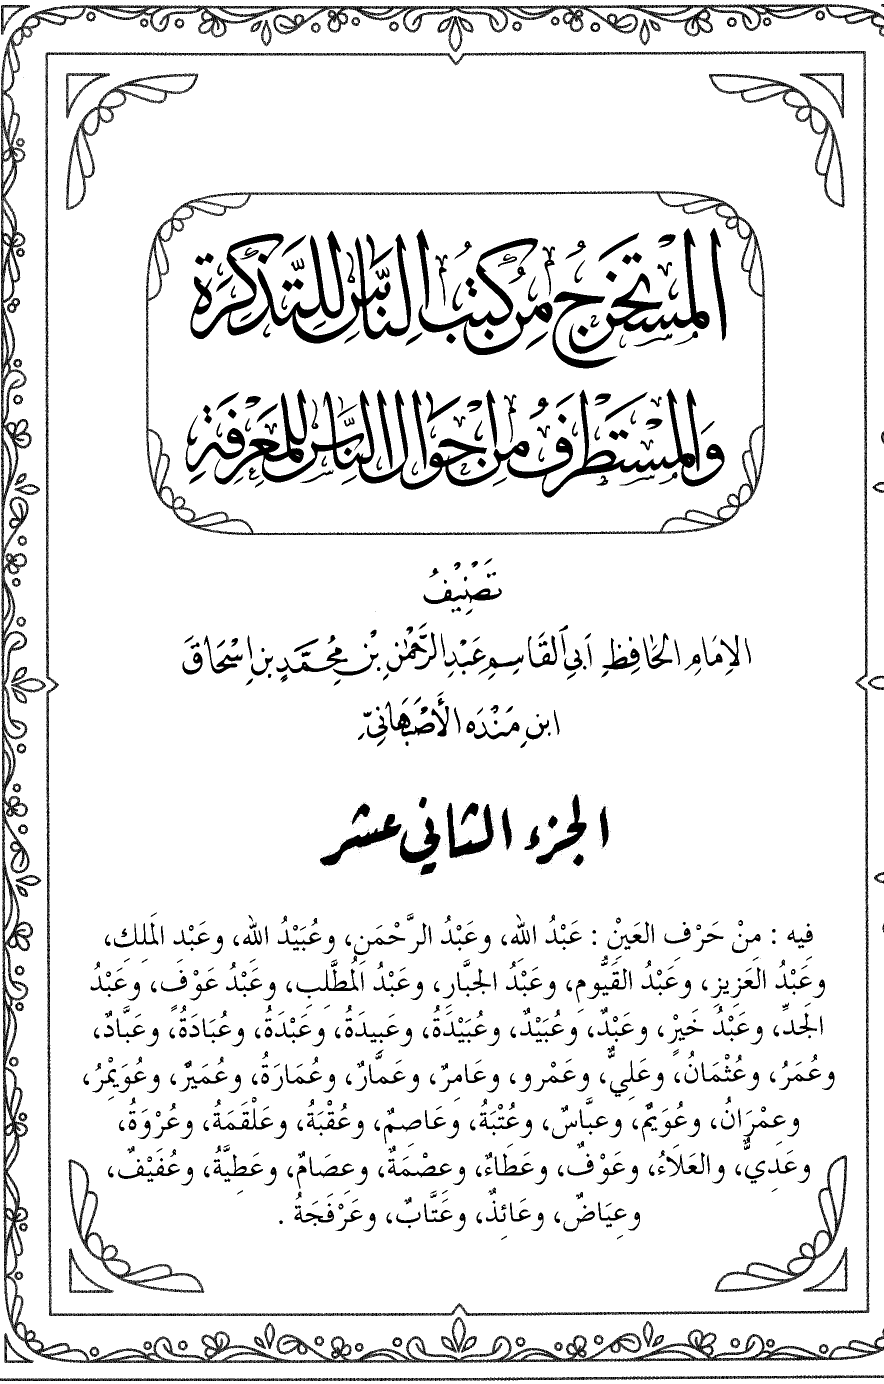 المُسْتَخْرَجُ مِنْ كُتُبِ النَّاسِ لِلتَّذْكِرَةِ
وَالمُسْتَطْرَفُ مِنْ أَحْوَالِ النَّاسِ لِلْمَعْرِفَةِ
تَصْنِيْفُ
الإِمَامِ الحَافِظِ أَبِي القَاسِمِ عَبْدِ الرَّحْمٰنِ بْنِ مُحَمَّدِ بنِ إِسْحَاقَ
ابنِ مَنْدَه الأَصْبَهَانِيِّ
الجزء الثاني عشر
فيه : مِنْ حَرْفِ العَيْنِ : عَبْدُ الله، وعَبْدُ الرَّحْمَنِ، وعُبَيْدُ الله، وعَبْد المَلِكِ،
وعَبْدُ العَزِيزِ، وعَبْدُ القَيُّومِ، وعَبْدُ الجبَّارِ، وعَبْدُ المُطَّلِبِ، وعَبْدُ عَوْفٍ، وعَبْدُ
الجَدِّ، وعَبْدُ خَيْرٍ، وعَبْدٌ، وعُبَيْدٌ، وعُبَيْدَةُ، وعَبِيدَةُ، وعَبْدَةُ، وعُبَادَةُ، وعَبَّادٌ،
وعُمَرُ، وعُثْمَانُ، وعَلِيٌّ، وعَمْرو، وعَامِرٌ، وعَمَّارٌ، وعُمَارَةُ، وعُمَيرٌ، وعُوَيْمِرُ،
وعِمْرَانُ، وعُوَيمٌ، وعبَّاسٌ، وعُتْبَةُ، وعَاصِمٌ، وعُقْبَةُ، وعَلْقَمَةُ، وعُرْوَةُ،
وعَدِيٌّ، والعَلَاءُ، وعَوْفٌ، وعَطَاءٌ، وعِصْمَةُ، وعِصَامٌ، وعَطِيَّةُ، وعُفَيْفٌ،
وعِيَاضٌ، وعَائِذٌ، وعَتَّابٌ، وعَرْفَجَةُ .